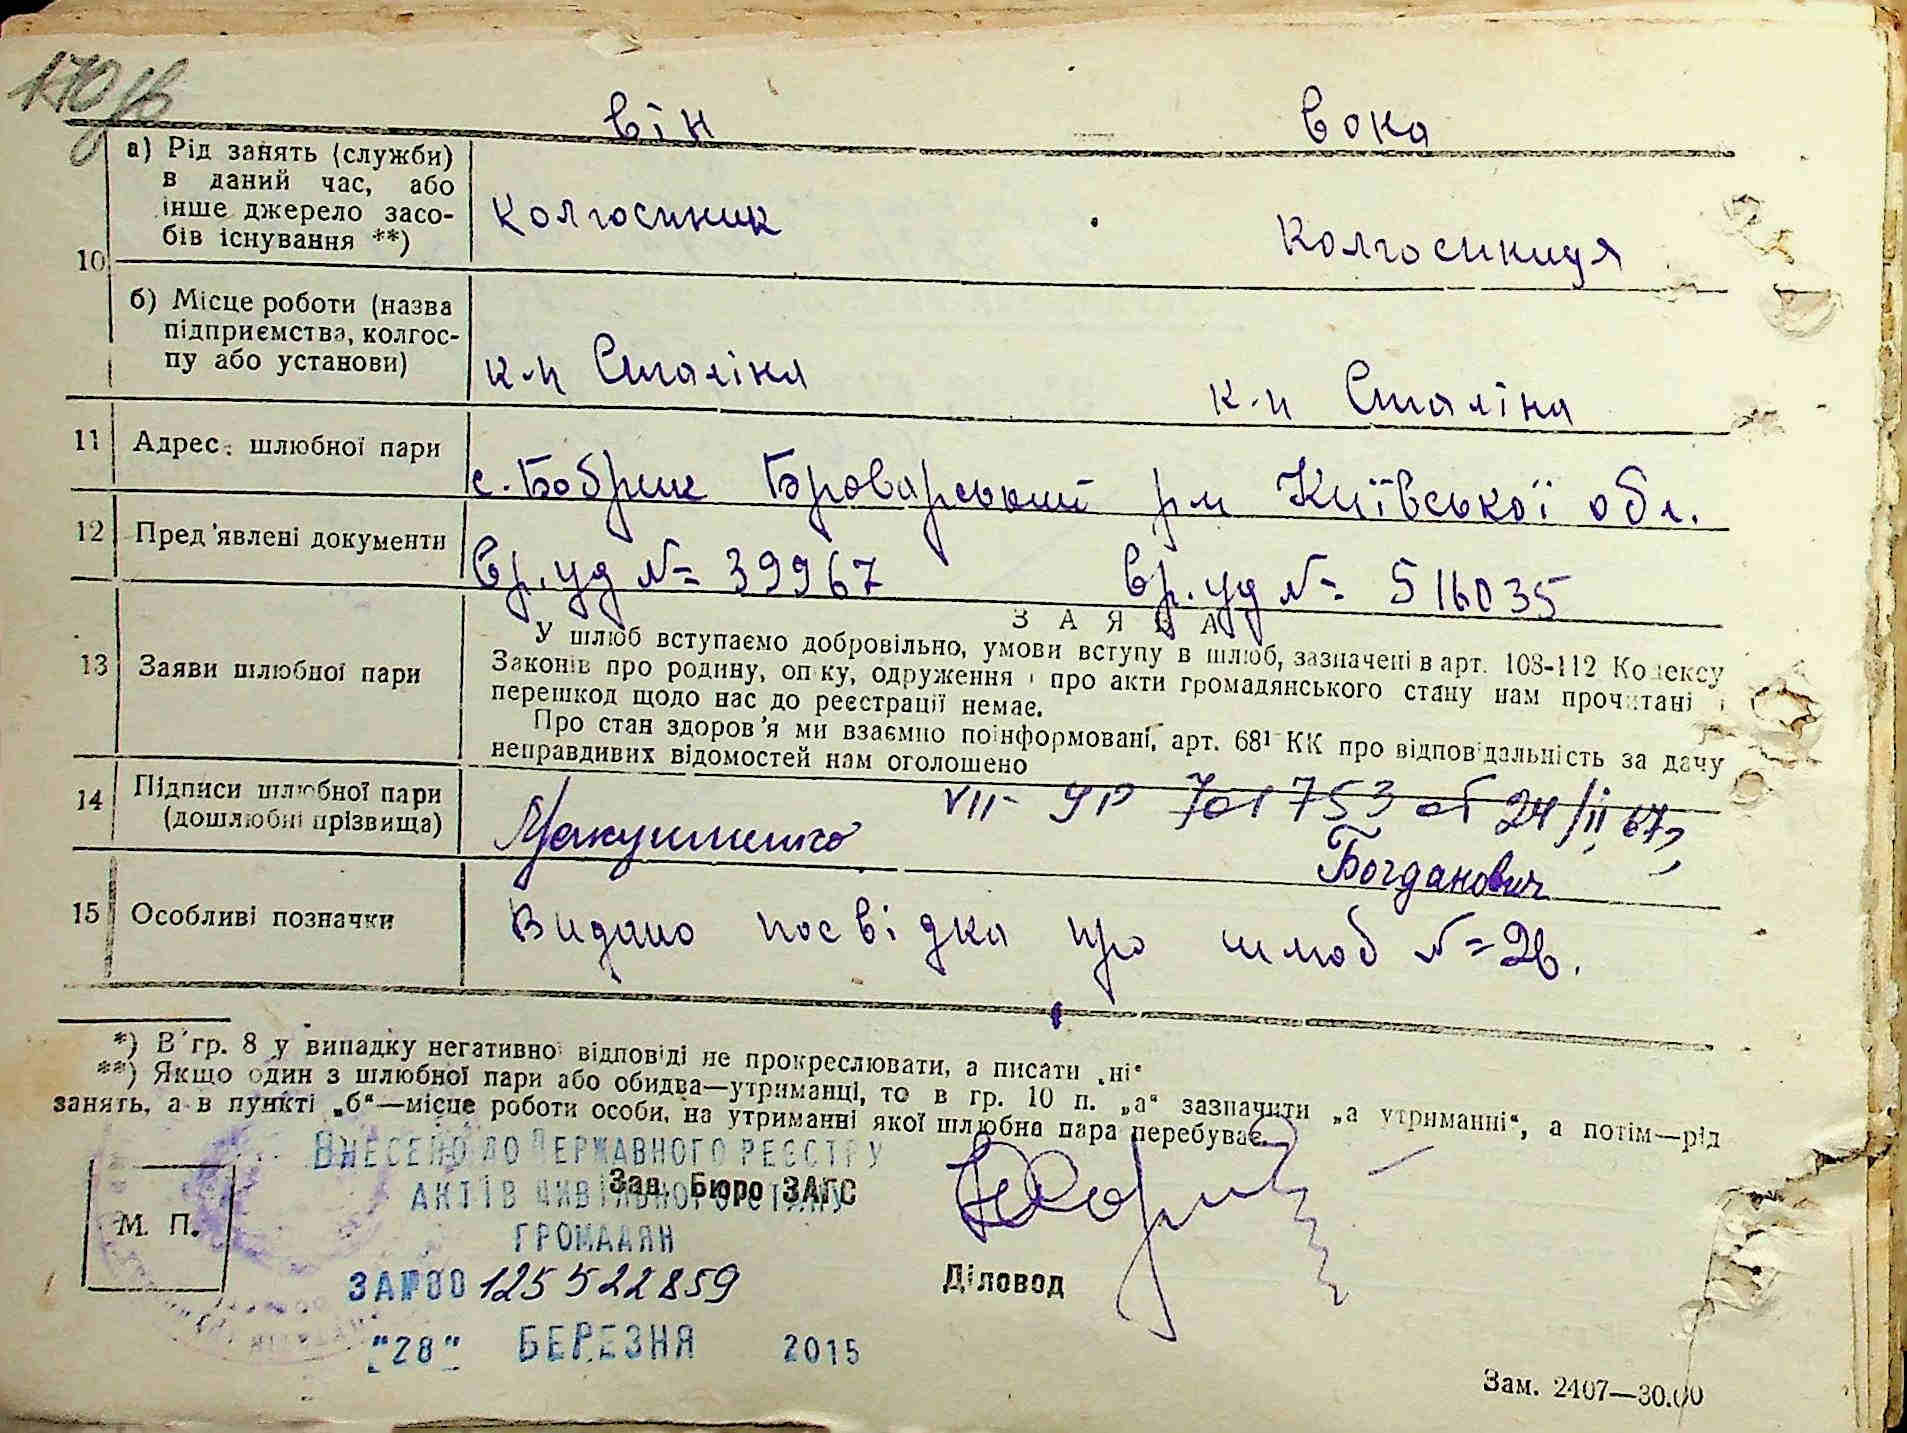 він вона
а) Рід занять (служби)
в даний час, або
інше джерело засо-
бів існування **)
колгоспник колгоспниця
10
б) Місце роботи (назва
підприємства, колгос-
пу або установи)
к-п Сталіна к-п Сталіна
11 Адрес: шлюбної пари
с. Бобрик Броварський р-н Київської обл.
12 Пред'явлені документи
Вр. уд № 39967 Вр. уд № 516035
ЗАЯВА
13 Заяви шлюбної пари
У шлюб вступаємо добровільно, умови вступу в шлюб, зазначені в арт. 108-112 Кодексу
Законів про родину, опіку, одруження і про акти громадянського стану нам прочитані і
перешкод щодо нас до реєстрації немає.
Про стан здоров'я ми взаємно поінформовані, арт. 68¹ КК про відповідальність за дачу
неправдивих відомостей нам оголошено
VII-ЯР 701753 от 24/ii 67
14 Підписи шлюбної пари
(дошлюбні прізвища)
Богданович
15 Особливі позначки
Видано посвідка про шлюб № 26.
*) В гр. 8 у випадку негативної відповіді не прокреслювати, а писати „ні“
**) Якщо один з шлюбної пари або обидва—утриманці, то в гр. 10 п. „а“ зазначити „а утриманні“, а потім—рід
занять, а в пункті „б“—місце роботи особи, на утриманні якої шлюбна пара перебуває.
Внесено до Державного реєстру
актів цивільного стану
громадян
Зав. Бюро ЗАГС
М. П.
ЗА №00125522859
Діловод
"28" БЕРЕЗНЯ 2015
Зам. 2407—30.00